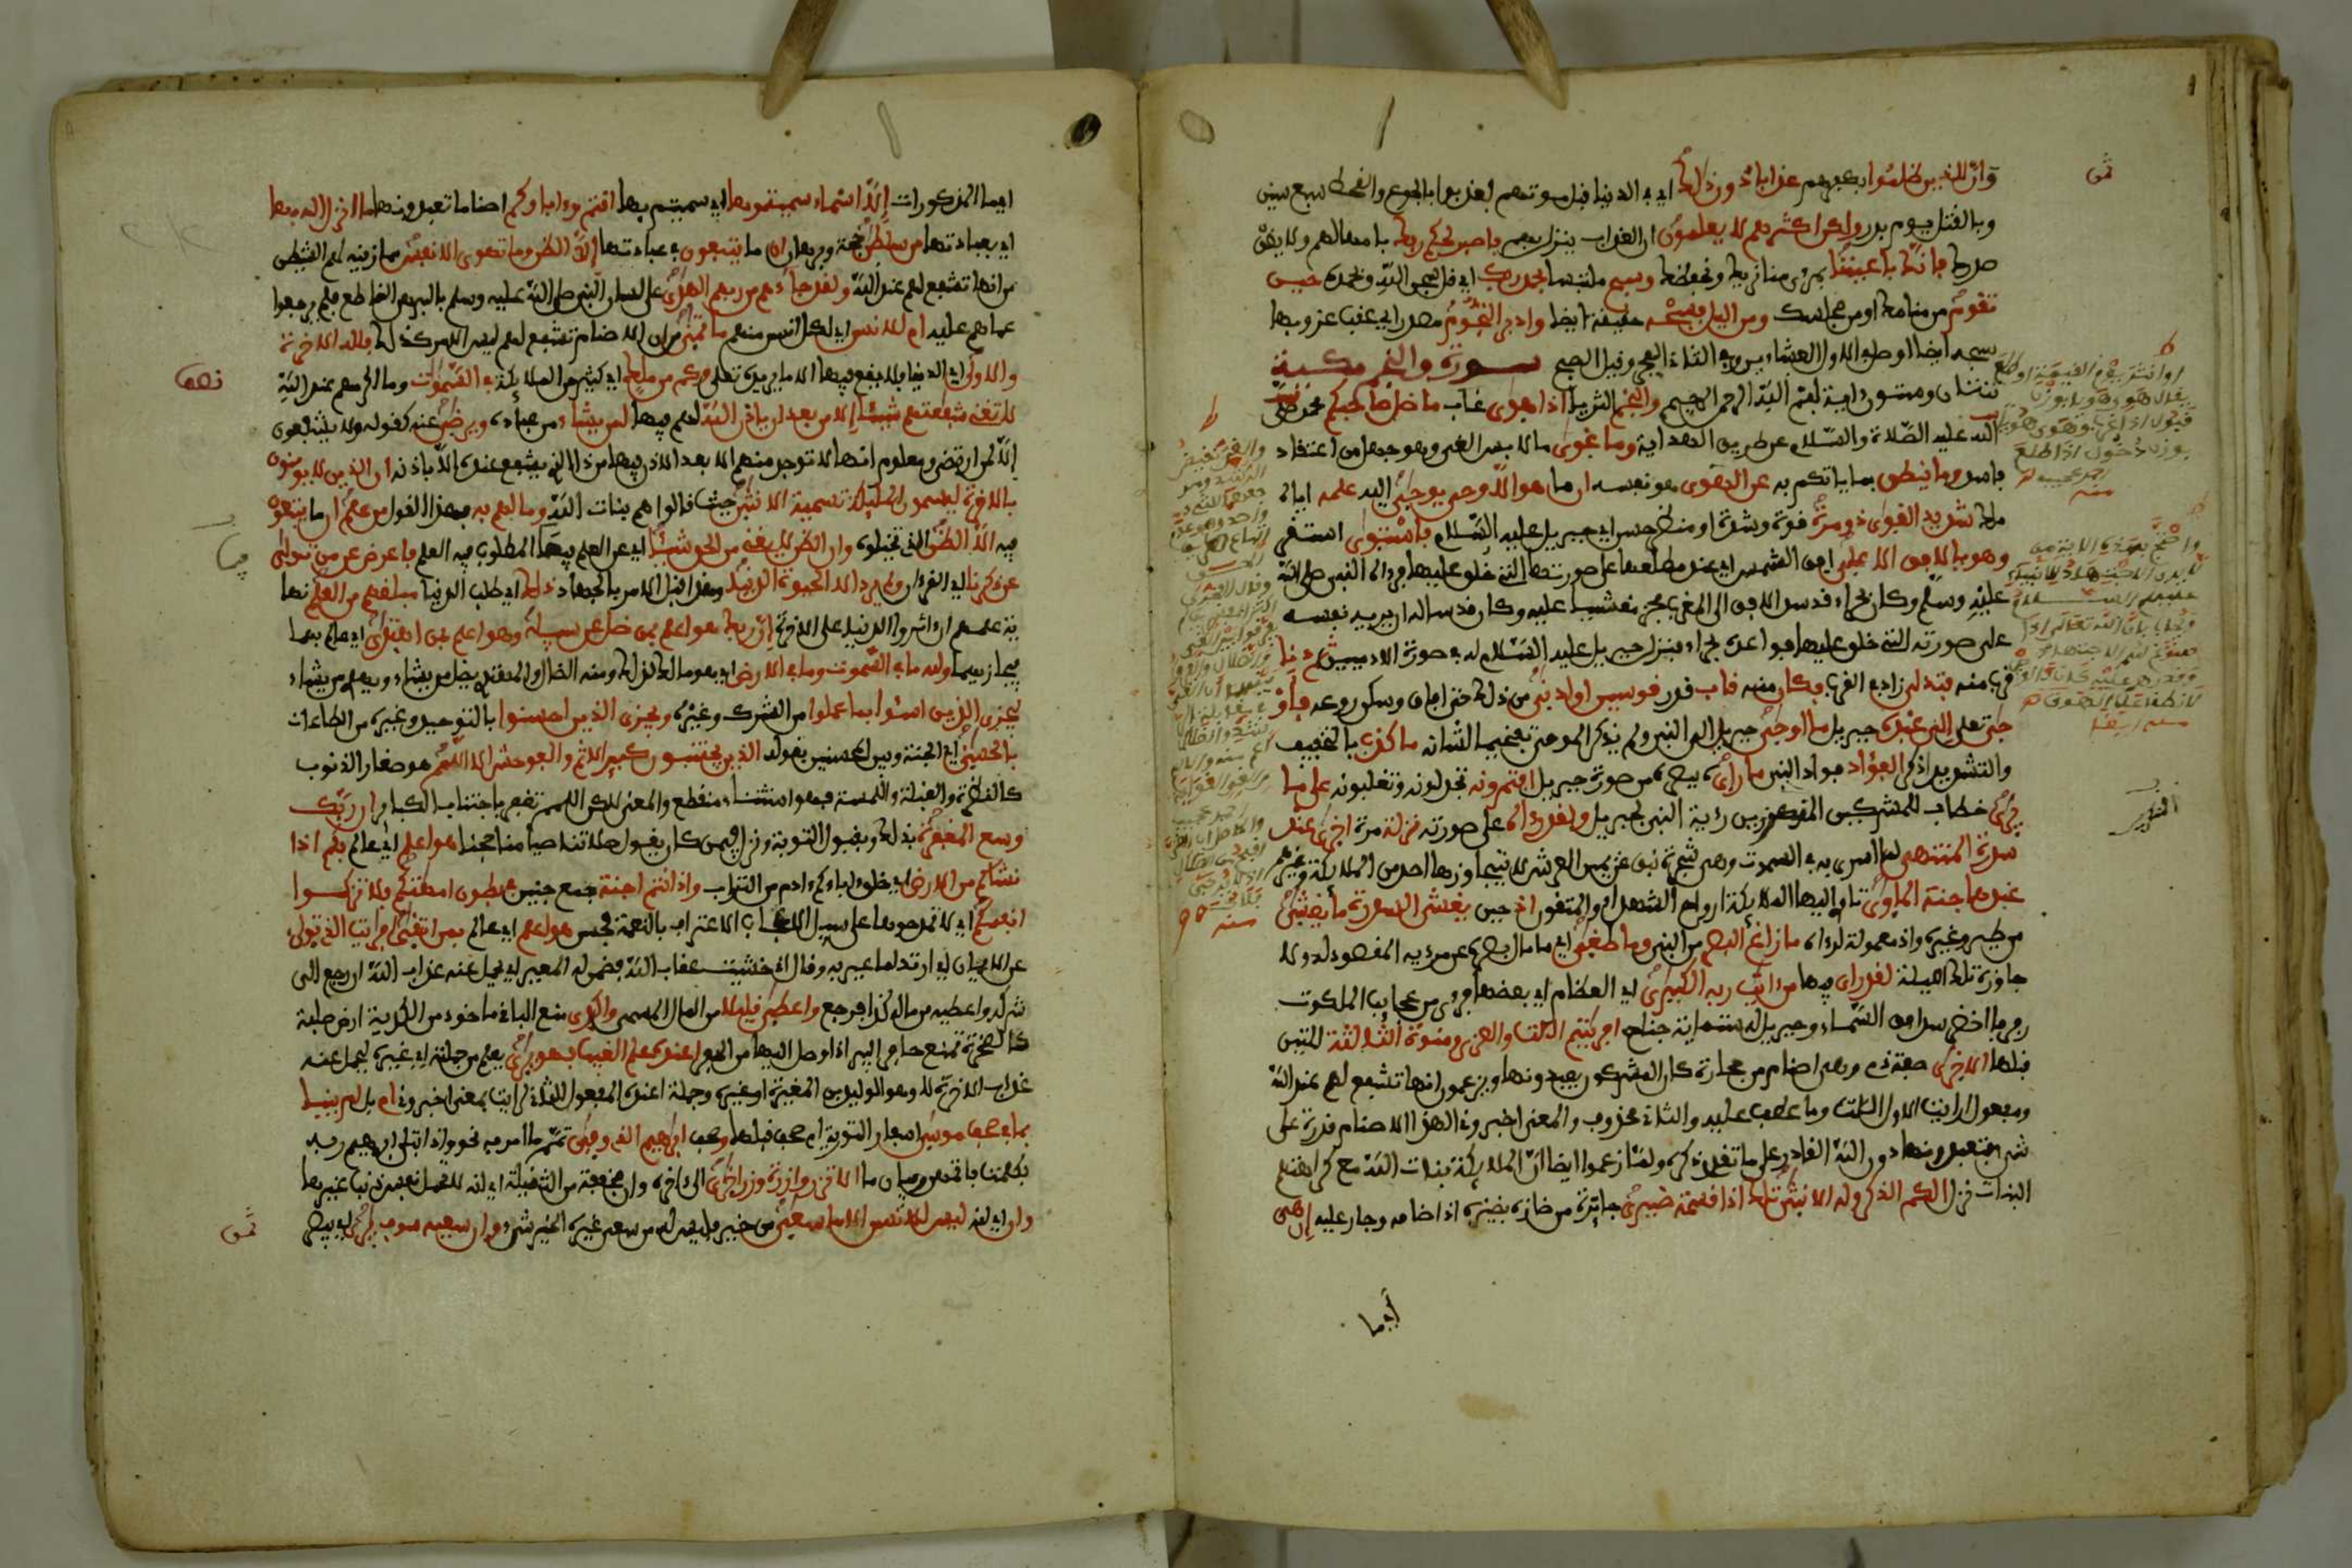 وان للذين ظلموا بكفرهم عذابا دون ذلك اي في الدنيا قبل موتهم فعذبوا بالجوع والقحط سبع سنين
وبالقتل يوم بدر ولكن اكثرهم لا يعلمون ان العذاب ينزل بهم واصبر لحكم ربك بامهالهم ولا يضق
صدرك فانك باعيننا بمرءى منا نريك ونحفظك وسبح ملتبسا بحمد ربك اي قل سبحن الله وبحمده حين
تقوم من منامك او من مجلسك ومن اليل فسبحه حقيقة ايضا وادبر النجوم مصدر اي عقب غروبها
سبحه ايضا او صل في الاول العشاءين وفي الثاني الفجر وقيل الصبح سورة والنجم مكية
ثنتان وستون اية بسم الله الرحمن الرحيم والنجم الثريا اذا هوى غاب ما ضل صاحبكم محمد صلى
الله عليه الصلاة والسلام عن طريق الهداية وما غوى ما لابس الغي وهو جهل من اعتقاد
فاسد وما ينطق بما ياتكم به عن الهوى هو نفسه ان ما هو الا وحي يوحى اليه علمه اياه
ملك شديد القوى ذو مرة قوة وشدة او منظر حسن اي جبريل عليه السلام فاستوى استقر
وهو بالافق الاعلى افق الشمس اي عند مطلعها على صورته التي خلق عليها فرءاه النبي صلى الله
عليه وسلم وكان بحراء قد سد الافق الى المغرب فخر مغشيا عليه وكان قد ساله ان يريه نفسه
على صورته التي خلق عليها فواعده بحراء فنزل جبريل عليه السلام له في صورة الادميين ثم دنا
قرب منه فتدلى زاد في القرب فكان منه قاب قدر قوسين او ادنى من ذلك حتى افاق وسكن روعه فاو
حى تعلى الى عبده جبريل ما اوحى جبريل الى النبي ولم يذكر الموحى تفخيما لشانه ما كذب بالتخفيف
والتشديد انكر الفؤاد فواد النبي ما رأى ببصره من صورة جبريل افتمرونه تجدلونه وتغلبونه على ما
يرى خطاب للمشركين المنكرين رؤية النبي لجبريل ولقد رءاه على صورته نزلة مرة اخرى عند
سدرة المنتهى لما اسري به في السموت وهي شجرة نبق عن يمين العرش لا يتجاوزها احد من الملائكة وغيرهم
عندها جنة الماوى تاوي اليها الملائكة او ارواح الشهداء او المتقون اذ حين يغشى السدرة ما يغشى
من طير وغيره واذ معمولة لرءاه ما زاغ البصر من النبي وما طغى اي ما مال بصره عن مرءيه المقصود له ولا
جاوزه تلك الليلة لقد راى فيها من ءايت ربه الكبرى اي العظام اي بعضها فرءى من عجايب الملكوت
رفرفا اخضر سد افق السماء وجبريل له ستماية جناح افرءيتم اللت والعزى ومنوة الثالثة للتين
قبلها الاخرى صفة ذم وهي اصنام من حجارة كان المشركون يعبدونها ويزعمون انها تشفع لهم عند الله
ومفعول ارايت الاول اللت وما عطف عليه والثاني محذوف والمعنى اخبروني الهذه الاصنام قدرة على
شيء فتعبدونها دون الله القادر على ما تقدم ذكره ولما زعموا ايضا ان الملايكة بنات الله مع كراهتهم
البنات نزل الكم الذكر وله الانثى تلك اذا قسمة ضيزى جايرة من ضازه يضيزه اذا ضامه وجار عليه ان هي
أيما
ايما المذكورات الا اسماء سميتموها اي سميتم بها انتم وءاباؤكم اصناما تعبدونها ما انزل الله بها
اي بعبادتها من سلطن حجة وبرهان ان ما يتبعون في عبادتها الا الظن وما تهوى الانفس مما زينه لهم الشيطن
من انها تشفع لهم عند الله ولقد جاءهم من ربهم الهدى على لسان النبي صلى الله عليه وسلم بالبرهن القاطع فلم يرجعوا
عما هم عليه ام للانسن اي لكل انسن منهم ما تمنى من ان الاصنام تشفع لهم ليس الامر كذلك فلله الاخرة
والاولى اي الدنيا فلا يقع فيهما الا ما يريده تعلى وكم من ملك اي كثير من الملايكة في السموت وما اكرمهم عند الله
لا تغني شفعتهم شيئا الا من بعد ان ياذن الله لهم فيها لمن يشاء من عباده ويرضى عنه كقوله ولا يشفعون
الا لمن ارتضى ومعلوم انها لا توجد منهم الا بعد الاذن فيها من ذا الذي يشفع عنده الا باذنه ان الذين لا يومنون
بالاخرة ليسمون المليكة تسمية الانثى حيث قالوا هم بنات الله وما لهم به بهذا القول من علم ان ما يتبعون
فيه الا الظن الذي تخيلوه وان الظن لا يغني من الحق شيئا اي عن العلم فيما المطلوب فيه العلم فاعرض عن من تولى
عن ذكرنا اي القرءان ولم يرد الا الحيوة الدنيا وهذا قبل الامر بالجهاد ذلك اي طلب الدنيا مبلغهم من العلم نها
ية علمهم ان ءاثروا الدنيا على الاخرة ان ربك هو اعلم بمن ضل عن سبيله وهو اعلم بمن اهتدى اي عالم بهما
فيجازيهما ولله ما في السموت وما في الارض اي هو مالك لذلك ومنه الضال والمهتدي يضل من يشاء ويهدي من يشاء
ليجزي الذين اسئوا بما عملوا من الشرك وغيره ويجزي الذين احسنوا بالتوحيد وغيره من الطاعات
بالحسنى اي الجنة وبين المحسنين بقوله الذين يجتنبون كبير الاثم والفوحش الا اللمم هو صغار الذنوب
كالنظرة والقبلة واللمسة فهو استثناء منقطع والمعنى لكن اللمم تغفر باجتناب الكباير ان ربك
وسع المغفرة بذلك وبقبول التوبة ونزل فيمن كان يقول صلاتنا صيامنا حجنا هو اعلم اي عالم بكم اذا
نشاكم من الارض اي خلق اباكم ءادم من التراب واذ انتم اجنة جمع جنين في بطون امهتكم فلا تزكوا
انفسكم اي لا تمدحوها على سبيل الاعجاب اما على سبيل الاعتراف بالنعمة فحسن هو اعلم اي عالم بمن اتقى افرايت الذي تولى
عن الايمان اي ارتد لما عير به وقال اني خشيت عقاب الله فضمن له المعير اي يحمل عنه عذاب الله ان رجع الى
شركه واعطيه من ماله كذا فرجع واعطى قليلا من المال المسمى واكدى منع الباقي ماخوذ من الكدية ارض صلبة
كالصخرة تمنع حافر البير اذا وصل اليها من الحفر اعنده علم الغيب فهو يرى يعلم من جملته ان غيره يحمل عنه
عذاب الاخرة لا وهو الوليد بن المغيرة او غيره وجملة اعنده المفعول الثاني لرايت بمعنى اخبروني ام بل لم ينبا
بما في صحف موسى اسفار التورية او صحف قبلها وصحف ابرهيم الذي وفى تمم ما امر به نحو واذ ابتلى ابرهيم ربه
بكلمت فاتمهن وبيان ما الا تزر وازرة وزر اخرى الى ءاخره وان مخففة من الثقيلة اي انه لا تحمل نفس ذنب غيرها
وان اي انه ليس للانسن الا ما سعى من خير فليس له من سعي غيره الخير شيء وان سعيه سوف يرى اي يبصر